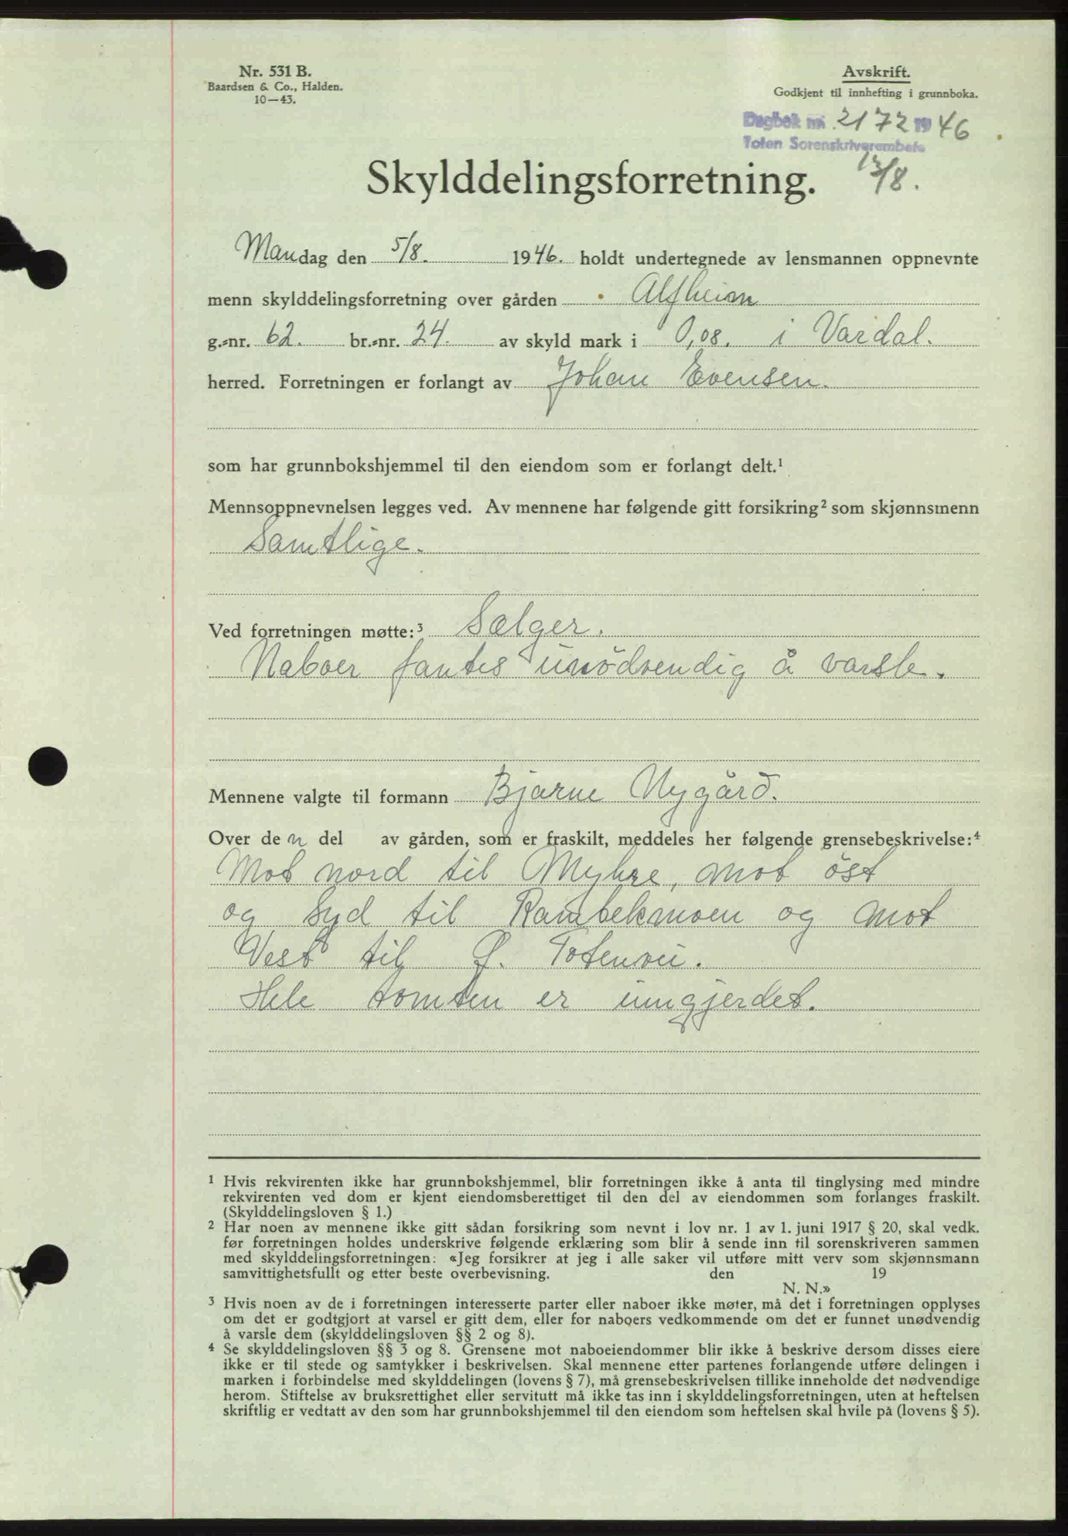 Nr. 531 B.
Baardsen & Co., Halden.
10—43.
Avskrift.
Godkjent til innhefting i grunnboka.
Dagbok nr. 2172 1946
Toten Sorenskriverembete
13/8.
Skylddelingsforretning.
Mandag den 5/8. 1946. holdt undertegnede av lensmannen oppnevnte
menn skylddelingsforretning over gården Alfheim
g.-nr. 62. br.-nr. 24. av skyld mark i 0,08. i Vardal.
herred. Forretningen er forlangt av Johan Evensen.
som har grunnbokshjemmel til den eiendom som er forlangt delt.¹
Mennsoppnevnelsen legges ved. Av mennene har følgende gitt forsikring² som skjønnsmenn
Samtlige.
Ved forretningen møtte:³ Sælger.
Naboer fantes unödvendig å varsle.
Mennene valgte til formann Bjarne Nygård.
Over den del av gården, som er fraskilt, meddeles her følgende grensebeskrivelse:⁴
Mot nord til Myhre, mot öst
og Syd til Rambekmoen og mot
Vest til Ø. Totenvei.
Hele tomten er inngjerdet.
¹ Hvis rekvirenten ikke har grunnbokshjemmel, blir forretningen ikke å anta til tinglysing med mindre
rekvirenten ved dom er kjent eiendomsberettiget til den del av eiendommen som forlanges fraskilt.
(Skylddelingsloven § 1.)
² Har noen av mennene ikke gitt sådan forsikring som nevnt i lov nr. 1 av 1. juni 1917 § 20, skal vedk.
før forretningen holdes underskrive følgende erklæring som blir å sende inn til sorenskriveren sammen
med skylddelingsforretningen: «Jeg forsikrer at jeg i alle saker vil utføre mitt verv som skjønnsmann
samvittighetsfullt og etter beste overbevisning. den 19
N. N.»
³ Hvis noen av de i forretningen interesserte parter eller naboer ikke møter, må det i forretningen opplyses
om det er godtgjort at varsel er gitt dem, eller for naboers vedkommende om det er funnet unødvendig
å varsle dem (skylddelingsloven §§ 2 og 8).
⁴ Se skylddelingsloven §§ 3 og 8. Grensene mot naboeiendommer blir ikke å beskrive dersom disses eiere
ikke er til stede og samtykker i beskrivelsen. Skal mennene etter partenes forlangende utføre delingen i
marken i forbindelse med skylddelingen (lovens § 7), må grensebeskrivelsen tillike inneholde det nødvendige
herom. Stiftelse av bruksrettighet eller servitutt må ikke tas inn i skylddelingsforretningen, uten at heftelsen
skriftlig er vedtatt av den som har grunnbokshjemmel til den eiendom som heftelsen skal hvile på (lovens § 5).